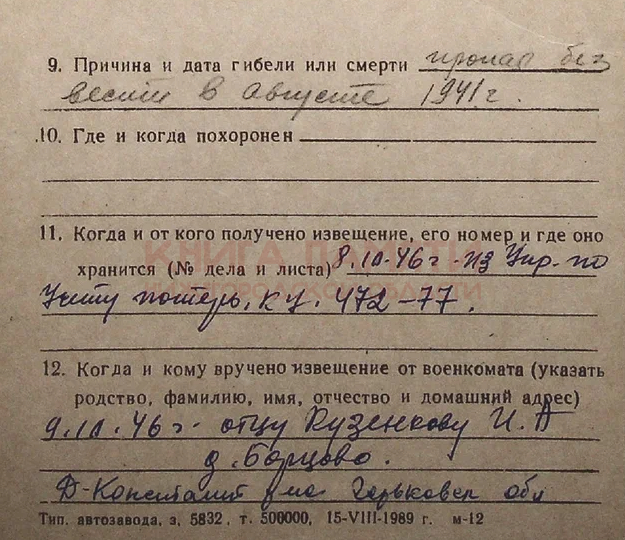 9. Причина и дата гибели или смерти пропал без
вести в августе 1941 г.
10. Где и когда похоронен
11. Когда и от кого получено извещение, его номер и где оно
КНИГА ПАМЯТИ
хранится (№ дела и листа) 8.10.46 г. из Упр. по
учету потерь,
472-77.
12. Когда и кому вручено извещение от военкомата (указать
родство, фамилию, имя, отчество и домашний адрес)
9.10.46 г. отцу Кузенкову И. А
д. Борцово.
Д-Констант Горьковск обл
Тип. автозавода, з. 5832, т. 500000, 15-VIII-1989 г. м-12